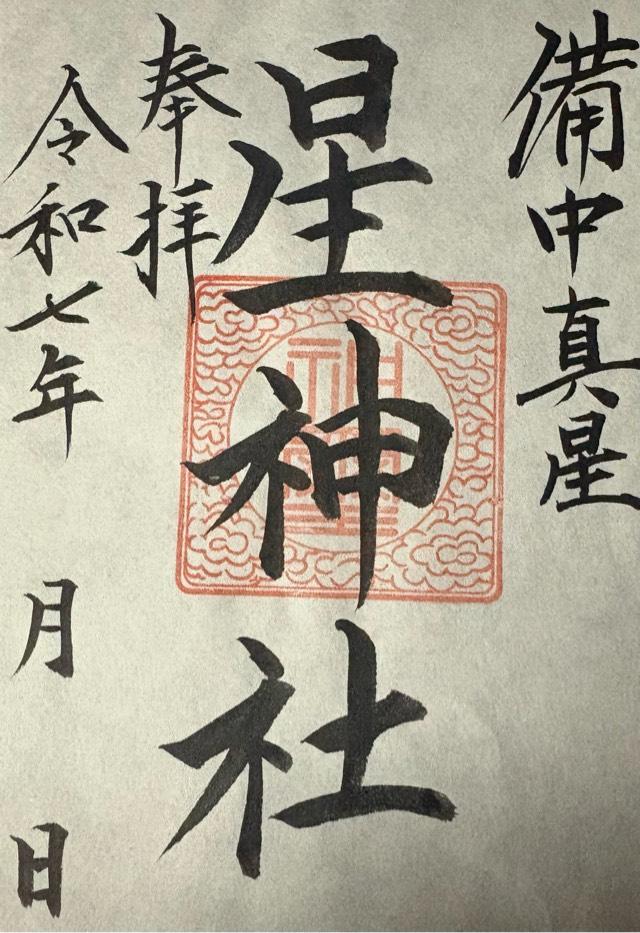 備中真星
星神社
奉拝
令和七年 月 日